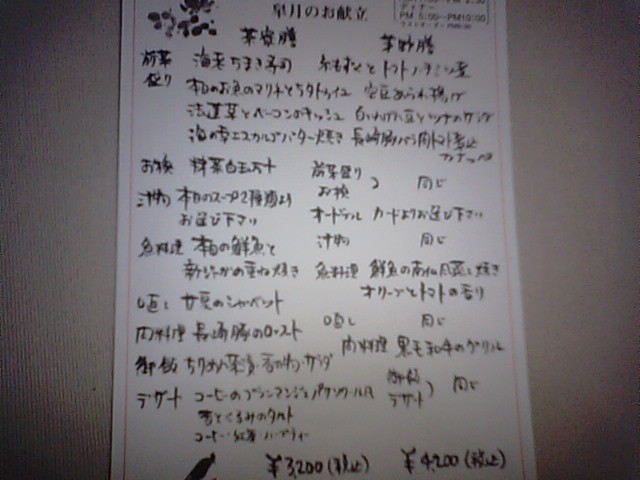 皐月のお献立
ディナー
PM 5:00~PM10:00
前菜 海老ちまき寿司 糸もずくとトマト
盛り 本日のお魚のマリネとラタトゥイユ 空豆あられ揚げ
法蓮草とベーコンのキッシュ 白いんげん豆とツナのサラダ
海の幸エスカルゴバター焼き 長崎豚バラ肉トマト煮込
お椀 抹茶白玉
前菜盛り
お椀 同じ
汁物 本日のスープ2種類より
お選び下さい
オードブル カードよりお選び下さい
魚料理 本日の鮮魚と
新じゃがの重ね焼き
汁物 同じ
魚料理 鮮魚の 蒸し焼き
オリーブとトマトの香り
口直し 甘夏のシャーベット
口直し 同じ
肉料理 長崎豚のロースト
肉料理 黒毛和牛のグリル
御飯 ちりめん サラダ
デザート コーヒーのブランマンジェ
杏とくるみのタルト
コーヒー 紅茶 ハーブティー
御飯
デザート 同じ
¥3,200(税込) ¥4,200(税込)